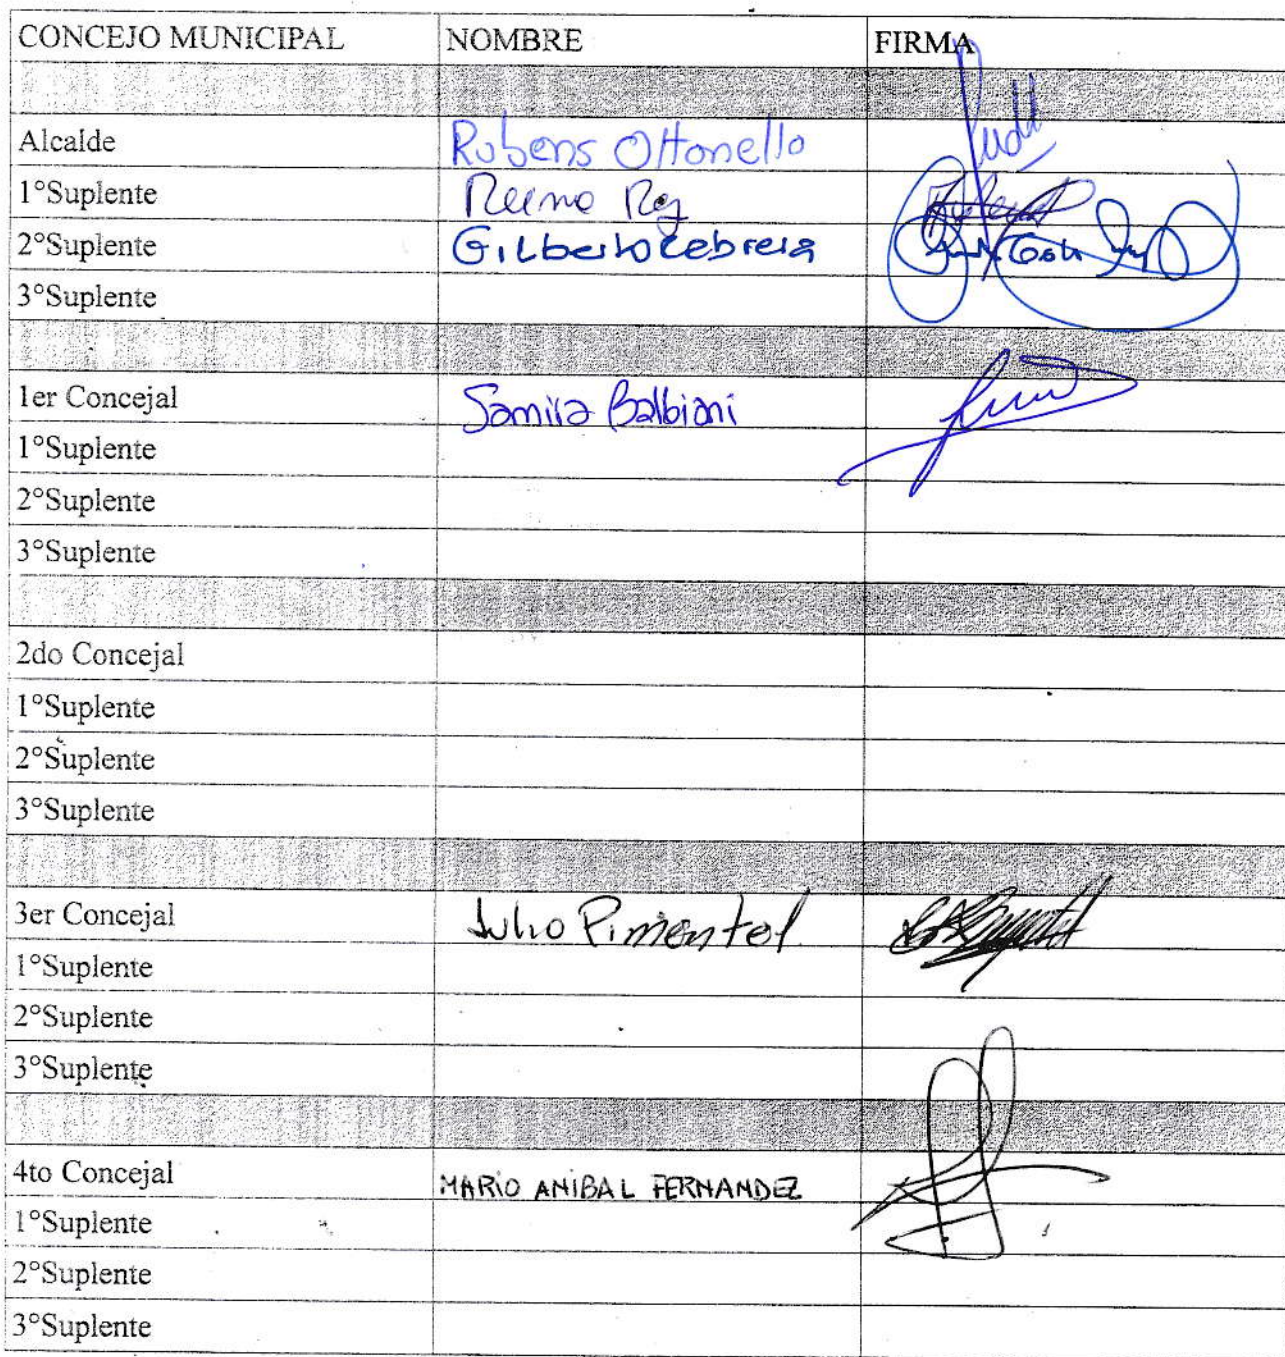 CONCEJO MUNICIPAL NOMBRE FIRMA
Alcalde Rubens Ottonello
1°Suplente
2°Suplente Gilberto Cabrera
3°Suplente
1er Concejal Samira Balbiani
1°Suplente
2°Suplente
3°Suplente
2do Concejal
1°Suplente
2°Suplente
3°Suplente
3er Concejal Julio Pimentel
1°Suplente
2°Suplente
3°Suplente
4to Concejal MARIO ANIBAL FERNANDEZ
1°Suplente
2°Suplente
3°Suplente